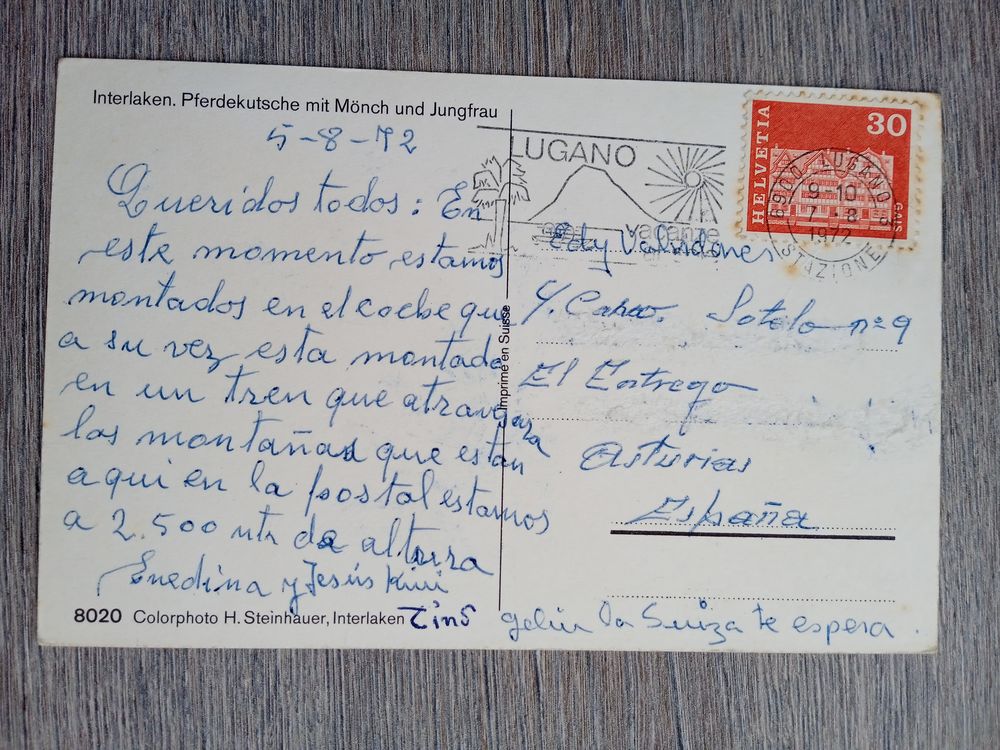 Interlaken. Pferdekutsche mit Mönch und Jungfrau
5-8-72
Queridos todos: En
este momento estamos
montados en el coche que
a su vez esta montado
en un tren que atraveza
las montañas que estan
aqui en la postal estamos
a 2.500 mtr de altura
Enedina y Jesús Kini
Tino
8020 Colorphoto H. Steinhauer, Interlaken
Imprimé en Suisse
LUGANO
vacanze
HELVETIA
30
GAIS
6900 LUGANO 2
9-10
7-8
1972
STAZIONE
Edy
C/. Calvo. Sotelo nº 9
El Entrego
Asturias
España
la Suiza te espera.